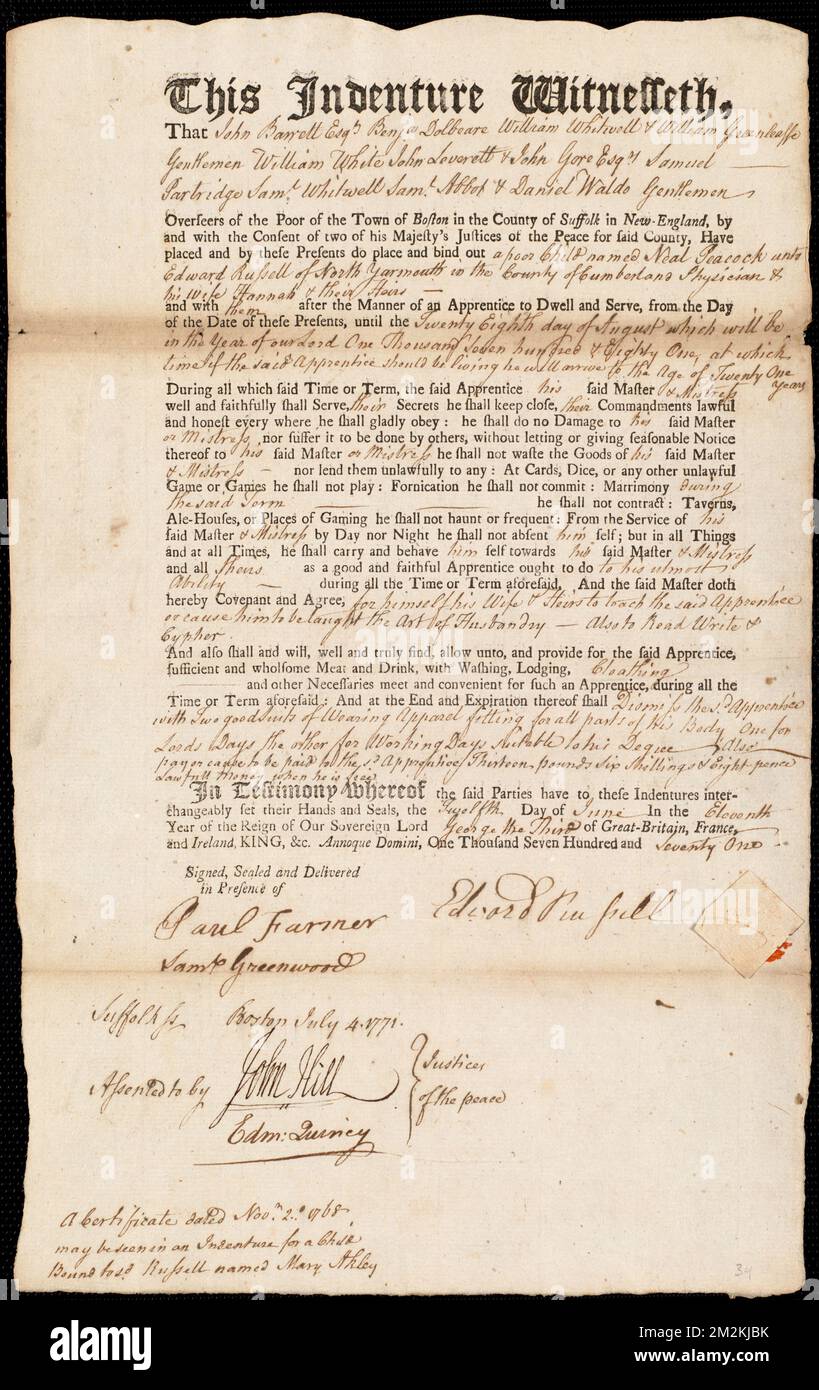 This Indenture Witnesseth,
That John Barrett Esqr. Benja. Dolbeare William Whitwell & William Greenleaffe
Gentlemen William White John Leverett & John Gore Esqrs. Samuel
Partridge Saml. Whitwell Saml. Abbot & Daniel Waldo Gentlemen
Overseers of the Poor of the Town of Boston in the County of Suffolk in New-England, by
and with the Consent of two of his Majesty's Justices of the Peace for said County, Have
placed and by these Presents do place and bind out a poor Child named Neal Peacock unto
Edward Russell of North Yarmouth in the County of Cumberland Physician &
his Wife Hannah & their Heirs —
and with them after the Manner of an Apprentice to Dwell and Serve, from the Day
of the Date of these Presents, until the Twenty Eighth day of August which will be
in the Year of our Lord One Thousand Seven hundred & Eighty One, at which
time if the said Apprentice should be living he will arrive to the Age of Twenty One
Years
During all which said Time or Term, the said Apprentice his said Master & Mistress
well and faithfully shall Serve, their Secrets he shall keep close, their Commandments lawful
and honest every where he shall gladly obey : he shall do no Damage to his said Master
or Mistress nor suffer it to be done by others, without letting or giving seasonable Notice
thereof to his said Master or Mistress he shall not waste the Goods of his said Master
& Mistress — nor lend them unlawfully to any : At Cards, Dice, or any other unlawful
Game or Games he shall not play : Fornication he shall not commit : Matrimony during
the said Term — he shall not contract : Taverns,
Ale-Houses, or Places of Gaming he shall not haunt or frequent : From the Service of his
said Master & Mistress by Day nor Night he shall not absent him self; but in all Things
and at all Times, he shall carry and behave him self towards his said Master & Mistress
and all Theirs as a good and faithful Apprentice ought to do to his utmost
Ability — during all the Time or Term aforesaid, And the said Master doth
hereby Covenant and Agree, for himself his Wife & Heirs to teach the said Apprentice
or cause him to be taught the Art of Husbandry — Also to Read Write &
Cypher
And also shall and will, well and truly find, allow unto, and provide for the said Apprentice,
sufficient and wholsome Meat and Drink, with Washing, Lodging, Cloathing
and other Necessaries meet and convenient for such an Apprentice, during all the
Time or Term aforesaid : And at the End and Expiration thereof shall Dismiss the sd. Apprentice
with Two good Suits of Wearing Apparel fitting for all parts of His Body One for
Lords Days the other for Working Days Suitable to his Degree Also
pay or cause to be paid to the sd. Apprentice Thirteen pounds Six Shillings & Eight pence
Lawfull Money when he is free
In Testimony Whereof the said Parties have to these Indentures inter-
changeably set their Hands and Seals, the Twelfth Day of June In the Eleventh
Year of the Reign of Our Sovereign Lord George the Third of Great-Britain, France,
and Ireland, KING, &c. Annoque Domini, One Thousand Seven Hundred and Seventy One
Signed, Sealed and Delivered
in Presence of
Edward Russell
Paul Farmer
Saml. Greenwood
Suffolk ss Boston July 4. 1771.
Assented to by John Hill Justices
of the peace
Edm: Quincy
A Certificate dated Novm. 2. 1768
may be seen in an Indenture for a Child
Bound to sd. Russell named Mary Akley
34
alamy
Image ID: 2M2KJBK
www.alamy.com